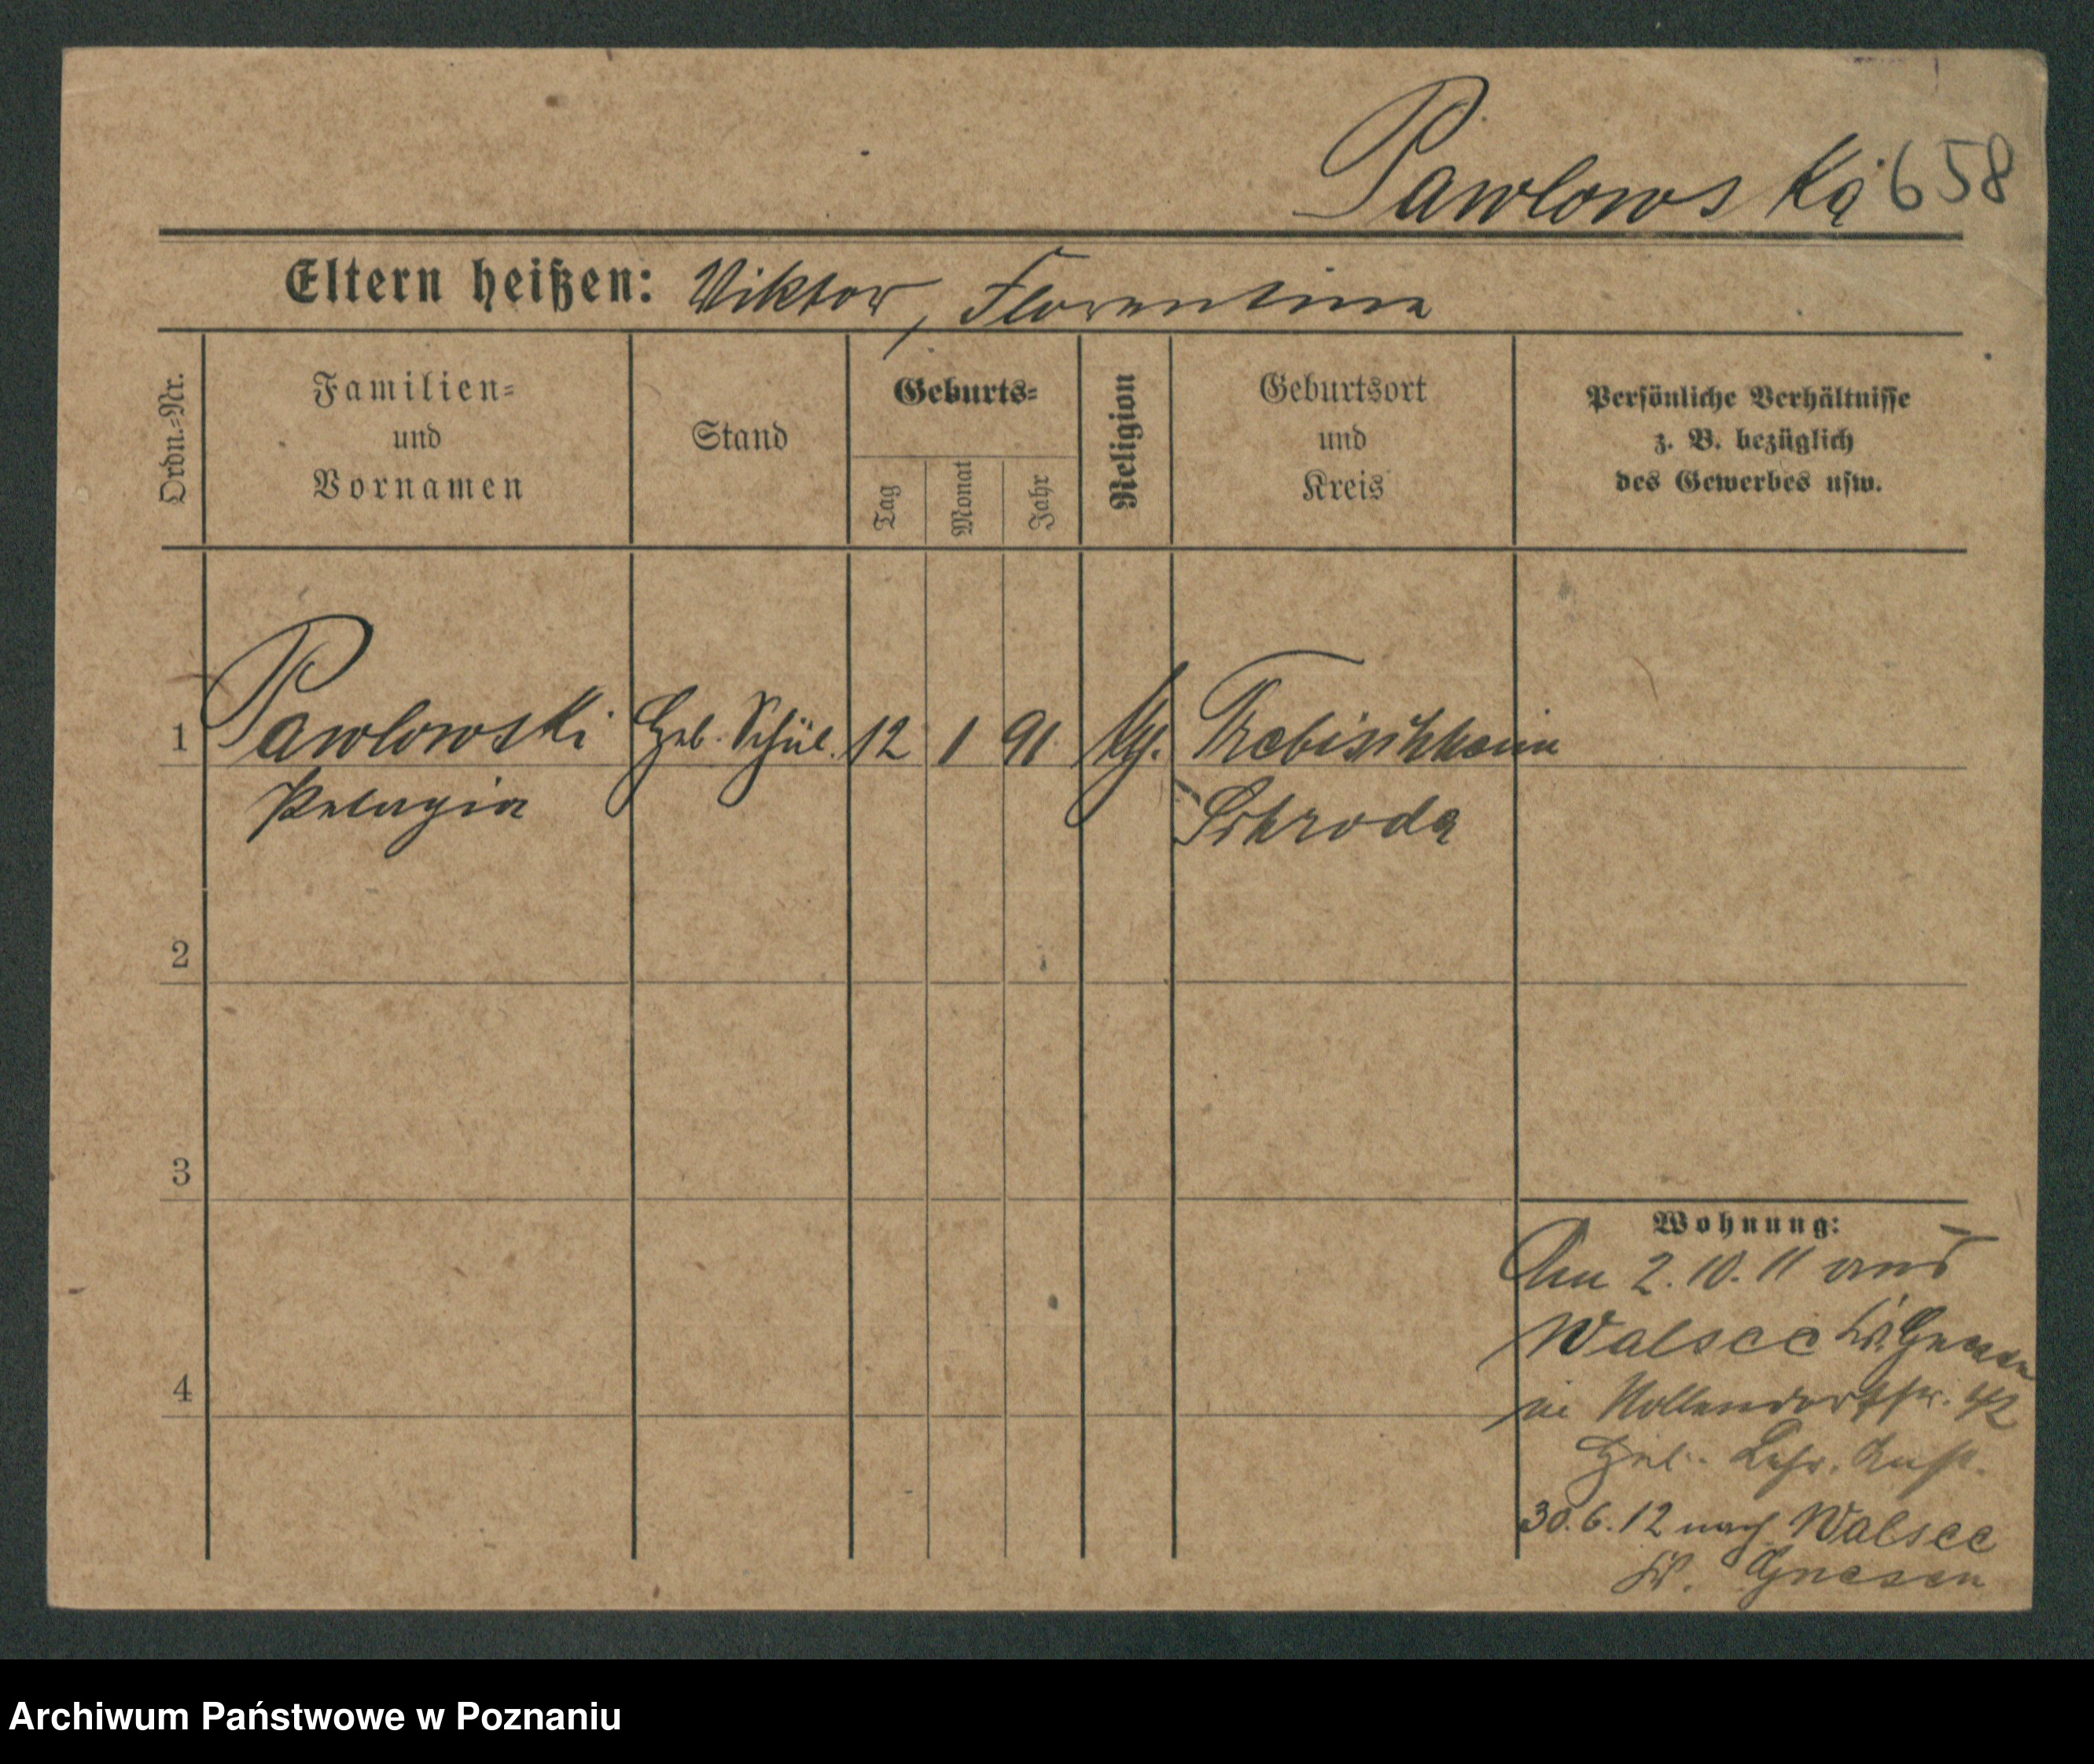 Pawlowska 658
Eltern heißen: Viktor, Florentina
Ordn.-Nr.
Familien-
und
Vornamen
Stand
Geburts-
Tag
Monat
Jahr
Religion
Geburtsort
und
Kreis
Persönliche Verhältnisse
z. B. bezüglich
des Gewerbes usw.
1 Pawlowski Heb. Schül. 12 1 91
Pelagia
Schroda
2
3
4
Wohnung:
Am 2.10.11 aus
Walsee Kr. Gnesen
in Nollendorfstr.
Heb. Lehr. Anst.
30.6.12 nach Walsee
Kr. Gnesen
Archiwum Państwowe w Poznaniu